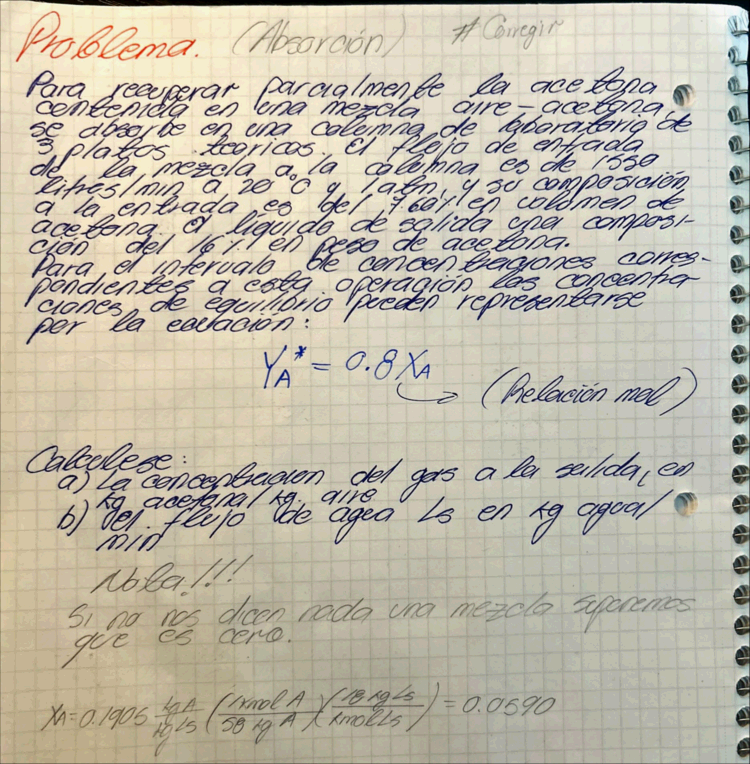 Problema. (Absorción) # Corregir
Para recuperar parcialmente la acetona
contenida en una mezcla aire-acetona,
se absorbe en una columna de laboratorio de
3 platos teoricos. El flujo de entrada
de la mezcla a la columna es de 1550
litros/min a 20°C y 1 atm, y su composición
a la entrada es del 7.60% en volumen de
acetona. el líquido de salida una composi-
ción del 16% en peso de acetona.
Para el intervalo de concentraciones corres-
pondientes a esta operación las concentra
ciones de equilibrio pueden representarse
por la ecuación:
Y_A* = 0.8 X_A
(Relación mol)
Calculese:
a) La concentracion del gas a la salida, en
kg acetona/kg. aire
b) del flujo de agua Ls en kg agua/
min
Nota!!!
Si no nos dicen nada una mezcla suponemos
que es cero.
X_A = 0.1905 kg A/kg Ls (1 kmol A/58 kg A)(18 kg Ls/kmol Ls) = 0.0590